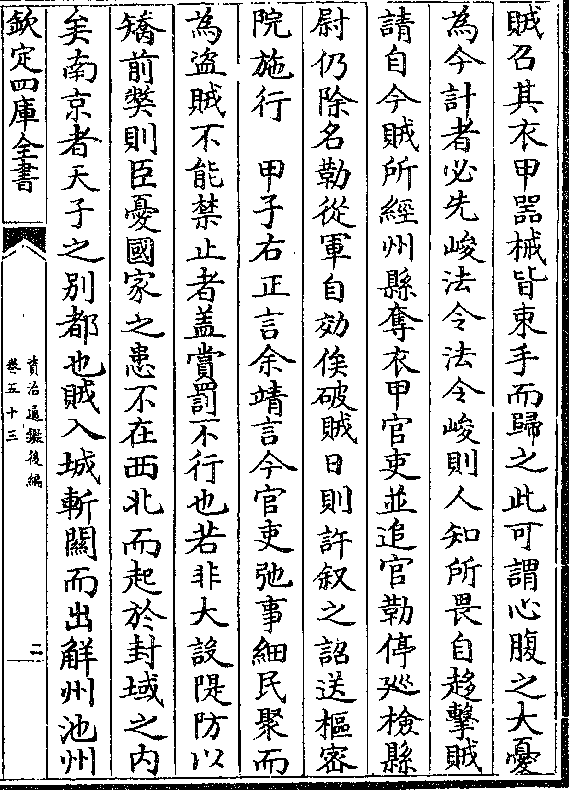 賊召其衣甲噐械皆束手而歸之此可謂心腹之大憂
為今計者必先峻法令法令峻則人知所畏自趍擊賊
請自今賊所經州縣奪衣甲官吏並追官勒停廵檢縣
尉仍除名勒從軍自効俟破賊日則許叙之詔送樞宻
院施行　甲子右正言余靖言今官吏弛事細民聚而
為盗賊不能禁止者盖賞罰不行也若非大設隄防以
矯前獘則臣憂國家之患不在西北而起於封域之内
矣南京者天子之别都也賊入城斬關而出解州池州
欽定四庫全書
資治通鑑後編
卷五十三
二